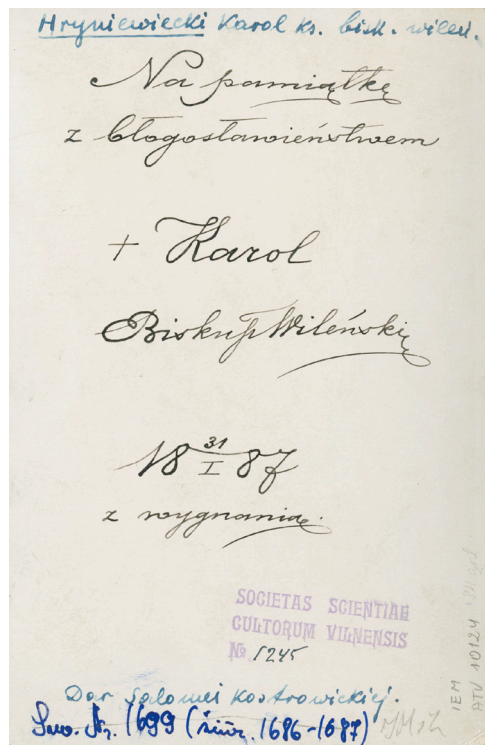 Hryniewiecki Karol ks. bisk. wileń.
Na pamiątkę
z błogosławieństwem
+ Karol
Biskup Wileński
18 31/I 87
z wygnania.
SOCIETAS SCIENTIAE
CULTORUM VILNENSIS
№ 1245
Dar Salomei Kostrowickiej.
Inw. Nr. 1699 (inw. 1686-1687)
IEM
ATV 10124